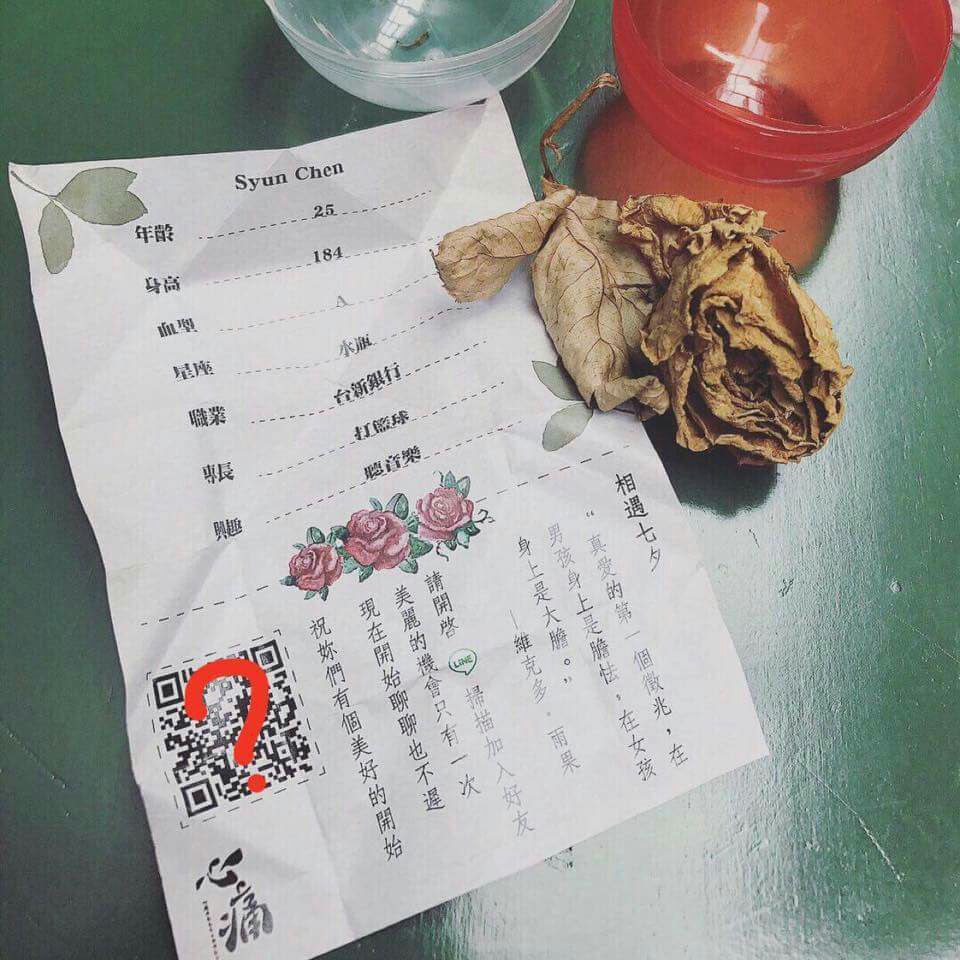 Syun Chen
年齡 25
身高 184
血型 A
星座 水瓶
職業 台新銀行
專長 打籃球
興趣 聽音樂
相遇七夕
“真愛的第一個徵兆，在
男孩身上是膽怯，在女孩
身上是大膽。”
—維克多．雨果
請開啓 LINE 掃描加入好友
美麗的機會只有一次
現在開始聊聊也不遲
祝妳們有個美好的開始
?
心痛